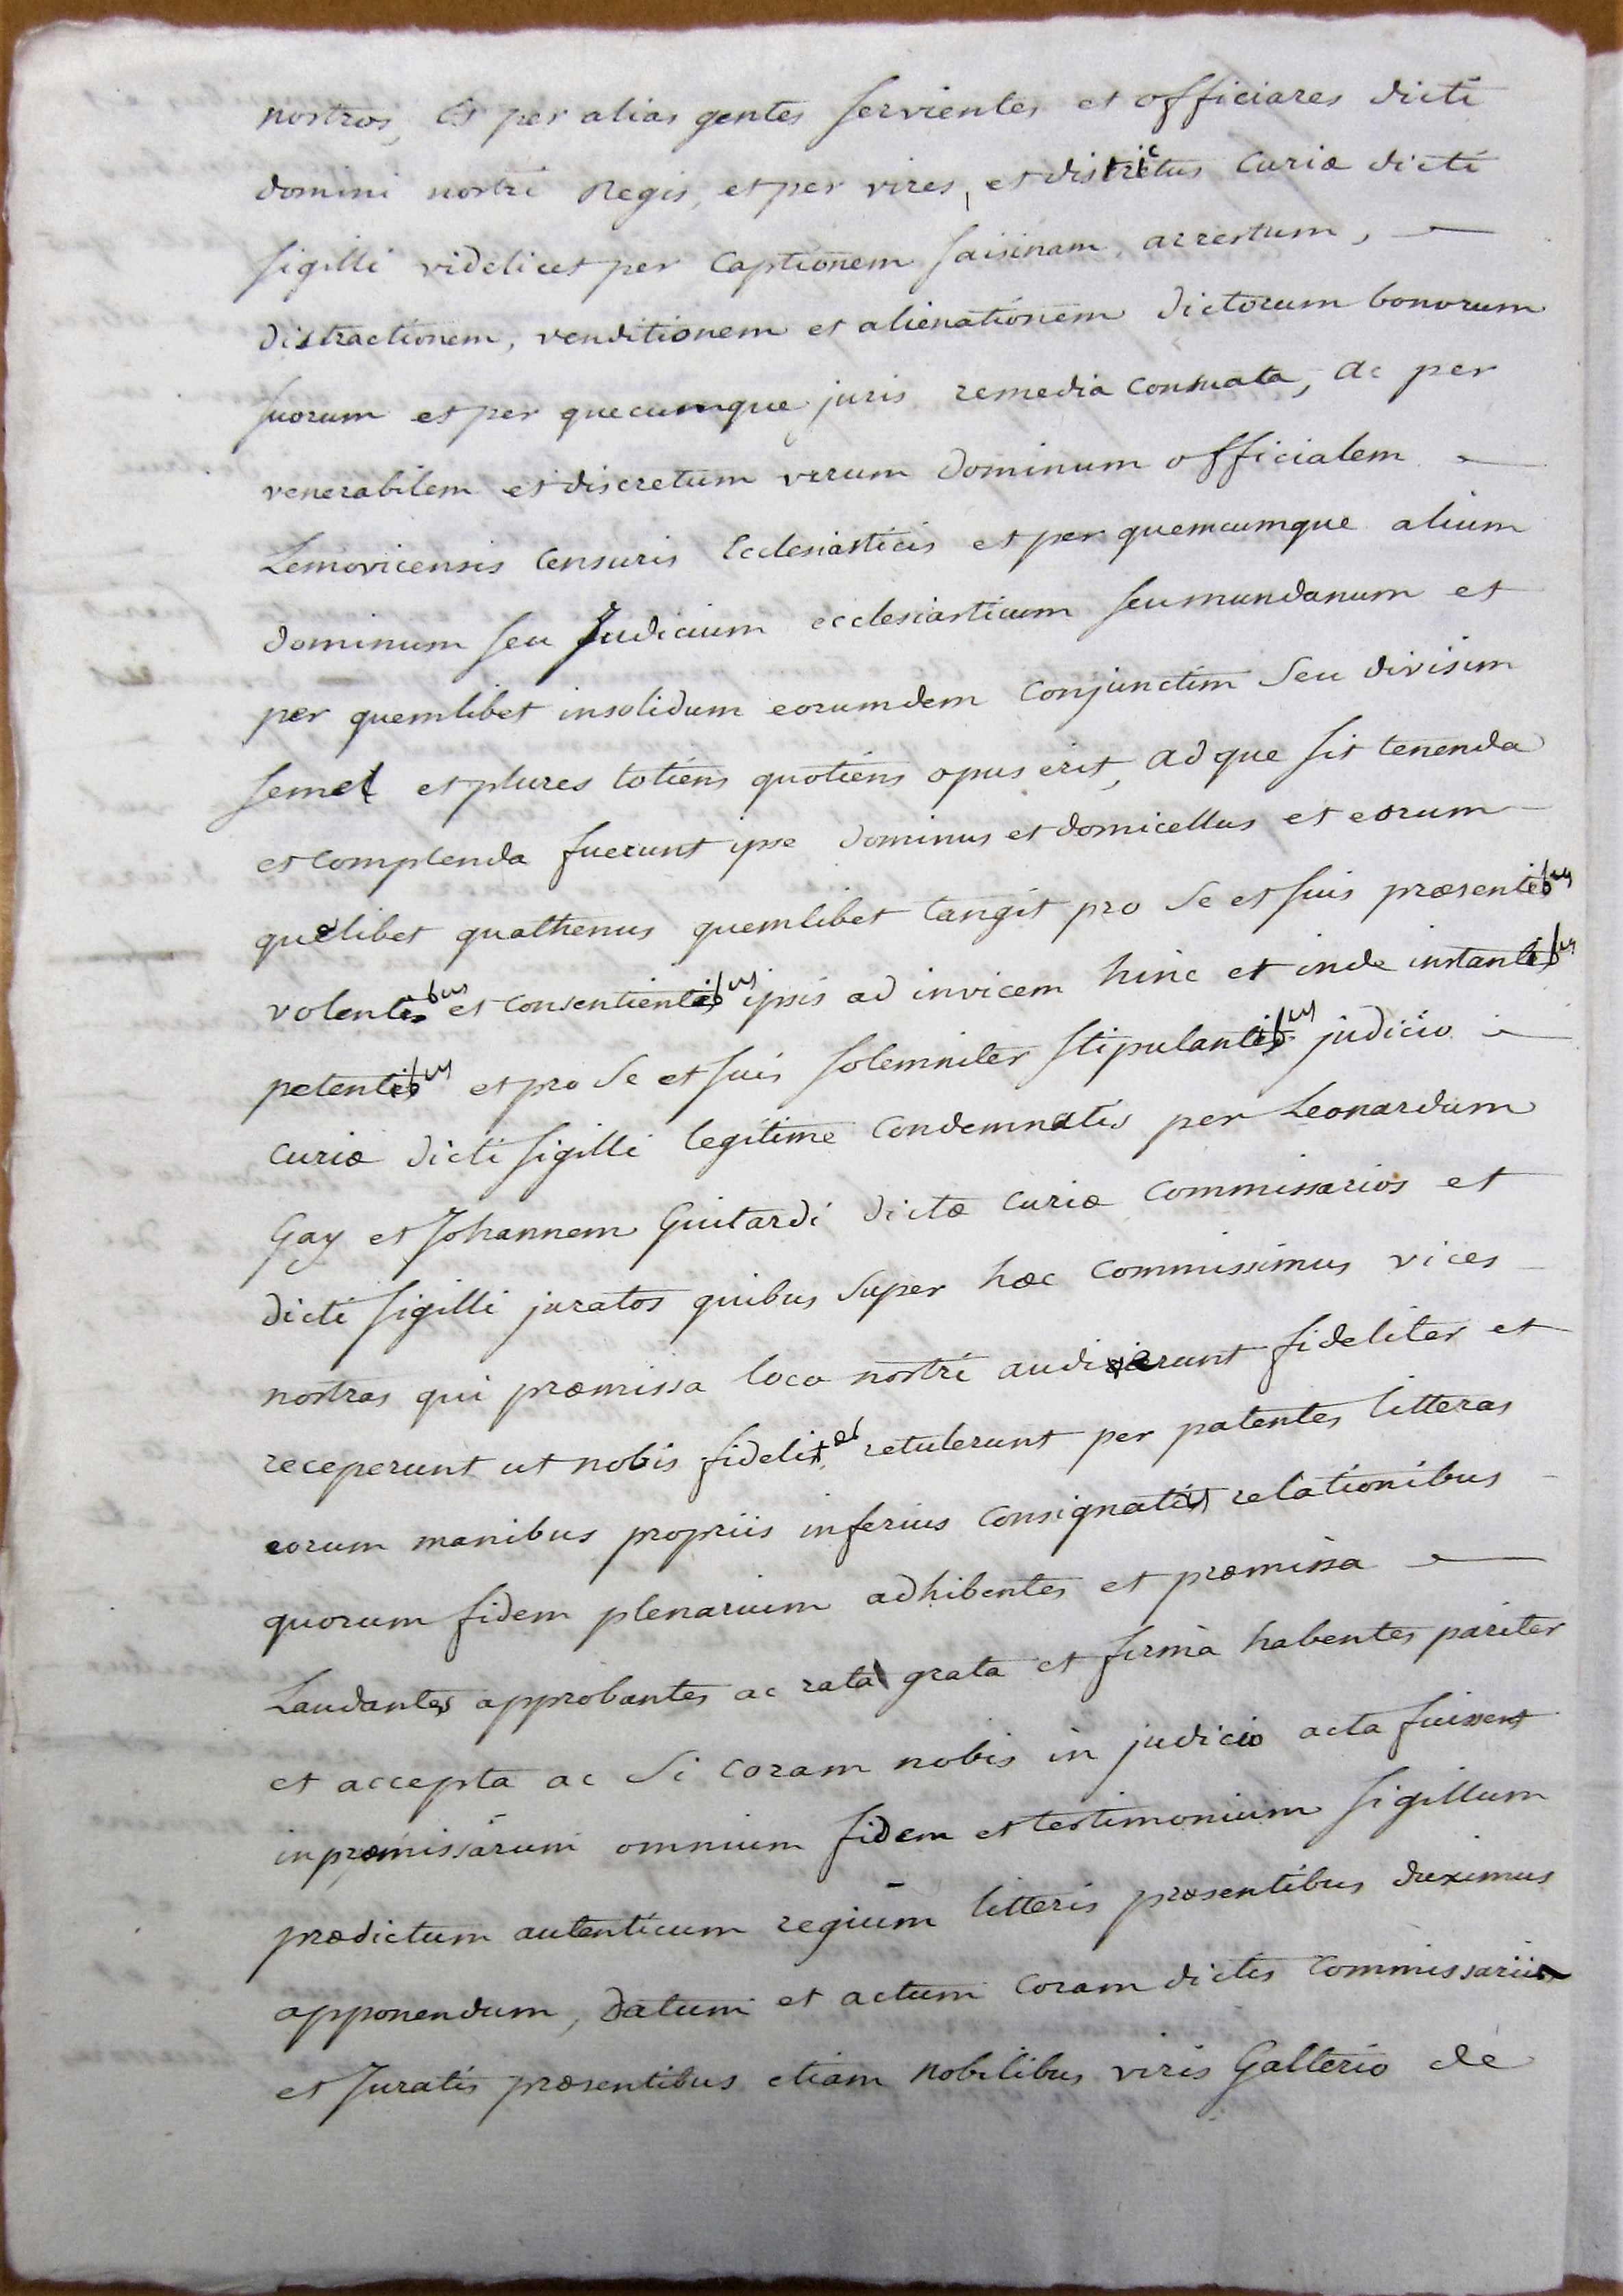 nostros, et per alias gentes servientes et officiares dicti
domini nostri Regis, et per vires, et districtus Curiæ dicti
sigilli videlicet per Captionem saisinam, arrestum,
distractionem, venditionem et alienationem dictorum bonorum
suorum et per quecumque juris remedia, ac per
venerabilem et discretum virum Dominum officialem
Lemovicensis Censuris Ecclesiasticis et per quemcumque alium
dominum seu Judicium ecclesiasticum seu mundanum et
per quemlibet insolidum eorumdem Conjunctim Seu divisim
semel et plures totiens quotiens opus erit, ad que sit tenenda
et complenda fuerunt ipse dominus et domicellus et eorum
quelibet quathenus quemlibet tangit pro Se et suis præsentibus
volentibus et consentientibus ipsis ad invicem hinc et inde instantibus
petentibus et pro Se et suis solemniter stipulantibus judicio
Curiæ dicti sigilli legitime Condemnatis per Leonardum
Gay et Johannem Guitardi dictæ Curiæ Commissarios et
dicti sigilli juratos quibus Super hæc Commissimus vices
nostras qui præmissa loco nostri audierunt fideliter et
receperunt ut nobis fideliter retulerunt per patentes litteras
eorum manibus propriis inferius Consignatis relationibus
quorum fidem plenarium adhibentes et præmissa
Laudantes approbantes ac rata grata et firma habentes pariter
et accepta ac Si Coram nobis in judicio acta fuissent
in præmissarum omnium fidem et testimonium sigillum
prædictum autenticum regium litteris præsentibus duximus
apponendum, Datum et actum Coram dictis Commissariis
et Juratis præsentibus etiam Nobilibus viris Galterio de